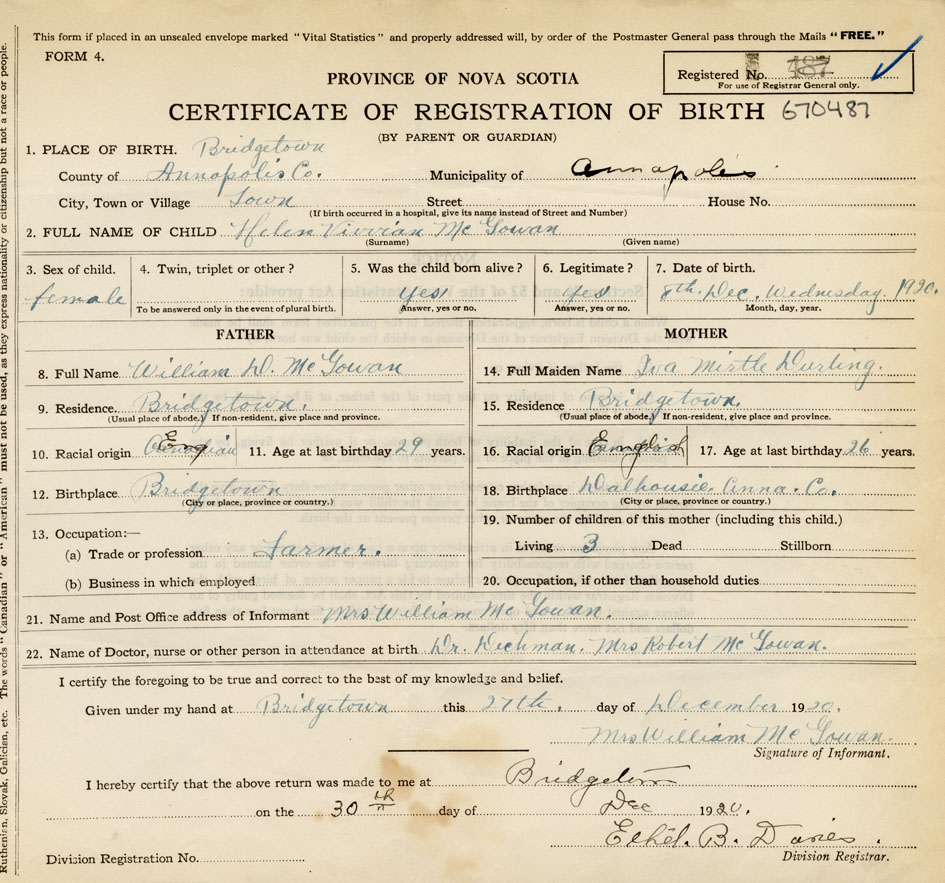 This form if placed in an unsealed envelope marked "Vital Statistics" and properly addressed will, by order of the Postmaster General pass through the Mails "FREE."
FORM 4.
Registered No. 487
For use of Registrar General only.
PROVINCE OF NOVA SCOTIA
CERTIFICATE OF REGISTRATION OF BIRTH 670487
(BY PARENT OR GUARDIAN)
1. PLACE OF BIRTH. Bridgetown
County of Annapolis Co. Municipality of Annapolis
City, Town or Village Town Street House No.
(If birth occurred in a hospital, give its name instead of Street and Number)
2. FULL NAME OF CHILD Helen Vivvian Mc Gowan
(Surname) (Given name)
3. Sex of child. 4. Twin, triplet or other? 5. Was the child born alive? 6. Legitimate? 7. Date of birth.
female yes yes 8th. Dec. Wednesday. 1920.
To be answered only in the event of plural birth. Answer, yes or no. Answer, yes or no. Month, day, year.
FATHER
8. Full Name William D. McGowan
9. Residence Bridgetown.
(Usual place of abode,) If non-resident, give place and province.
10. Racial origin Eng 11. Age at last birthday 29 years.
12. Birthplace Bridgetown
(City or place, province or country.)
13. Occupation:—
(a) Trade or profession Farmer.
(b) Business in which employed
MOTHER
14. Full Maiden Name Iva Mirtle Durling.
15. Residence Bridgetown.
(Usual place of abode,) If non-resident, give place and province.
16. Racial origin English 17. Age at last birthday 26 years.
18. Birthplace Dalhousie Anna. Co.
(City or place, province or country.)
19. Number of children of this mother (including this child.)
Living 3 Dead Stillborn
20. Occupation, if other than household duties
21. Name and Post Office address of Informant Mrs William Mc Gowan.
22. Name of Doctor, nurse or other person in attendance at birth Dr. Dechman. Mrs Robert McGowan.
I certify the foregoing to be true and correct to the best of my knowledge and belief.
Given under my hand at Bridgetown this 27th. day of December 1920.
Mrs William Mc Gowan.
Signature of Informant.
I hereby certify that the above return was made to me at Bridgetown
on the 30th day of Dec 1920.
Ethel. B. Davies.
Division Registrar.
Division Registration No.
Ruthenian, Slovak, Galician, etc. The words "Canadian" or "American" must not be used, as they express nationality or citizenship but not a race or people.